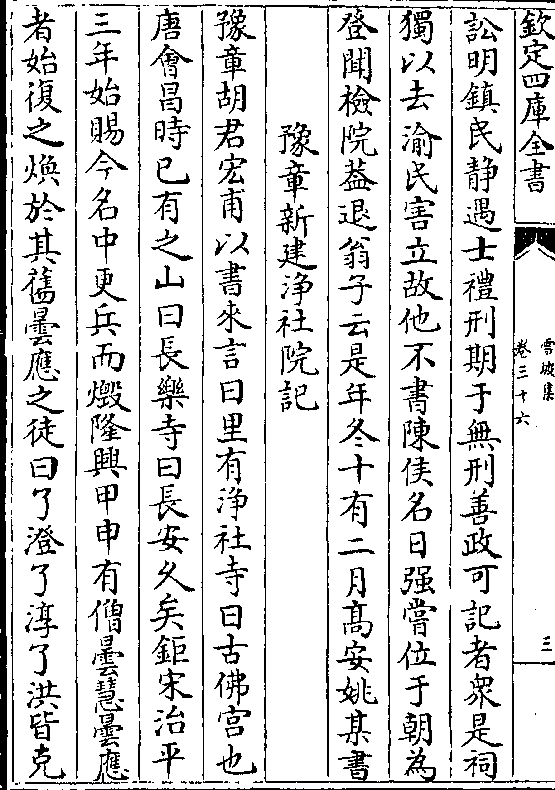 欽定四庫全書
雪坡集
卷三十六
三
訟明鎮民静遇士禮刑期于無刑善政可記者衆是祠
獨以去渝民害立故他不書陳侯名日强嘗位于朝為
登聞檢院葢退翁子云是年冬十有二月髙安姚某書
豫章新建浄社院記
豫章胡君宏甫以書來言曰里有浄社寺曰古佛宫也
唐㑹昌時已有之山曰長樂寺曰長安久矣鉅宋治平
三年始賜今名中更兵而燬隆興甲申有僧曇慧曇應
者始復之煥於其舊曇應之徒曰了澄了淳了洪皆克